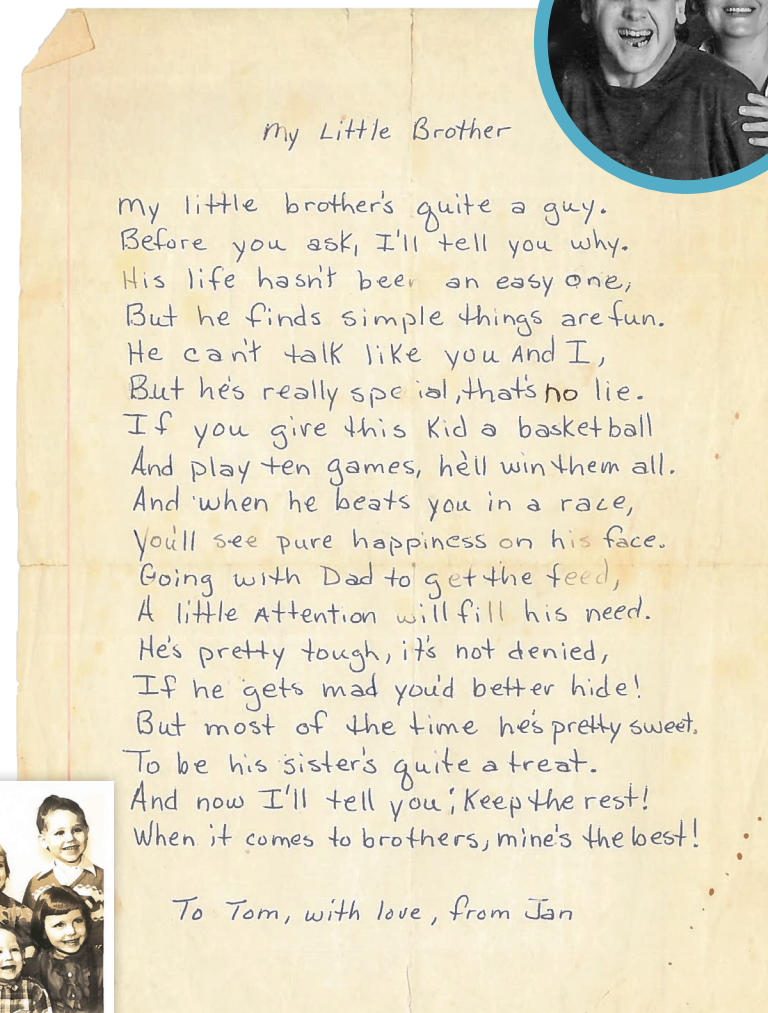 My Little Brother
My little brother's quite a guy.
Before you ask, I'll tell you why.
His life hasn't been an easy one,
But he finds simple things are fun.
He can't talk like you And I,
But he's really special, that's no lie.
If you give this Kid a basketball
And play ten games, he'll win them all.
And when he beats you in a race,
You'll see pure happiness on his face.
Going with Dad to get the feed,
A little Attention will fill his need.
He's pretty tough, it's not denied,
If he gets mad you'd better hide!
But most of the time he's pretty sweet.
To be his sister's quite a treat.
And now I'll tell you; Keep the rest!
When it comes to brothers, mine's the best!
To Tom, with love, from Jan